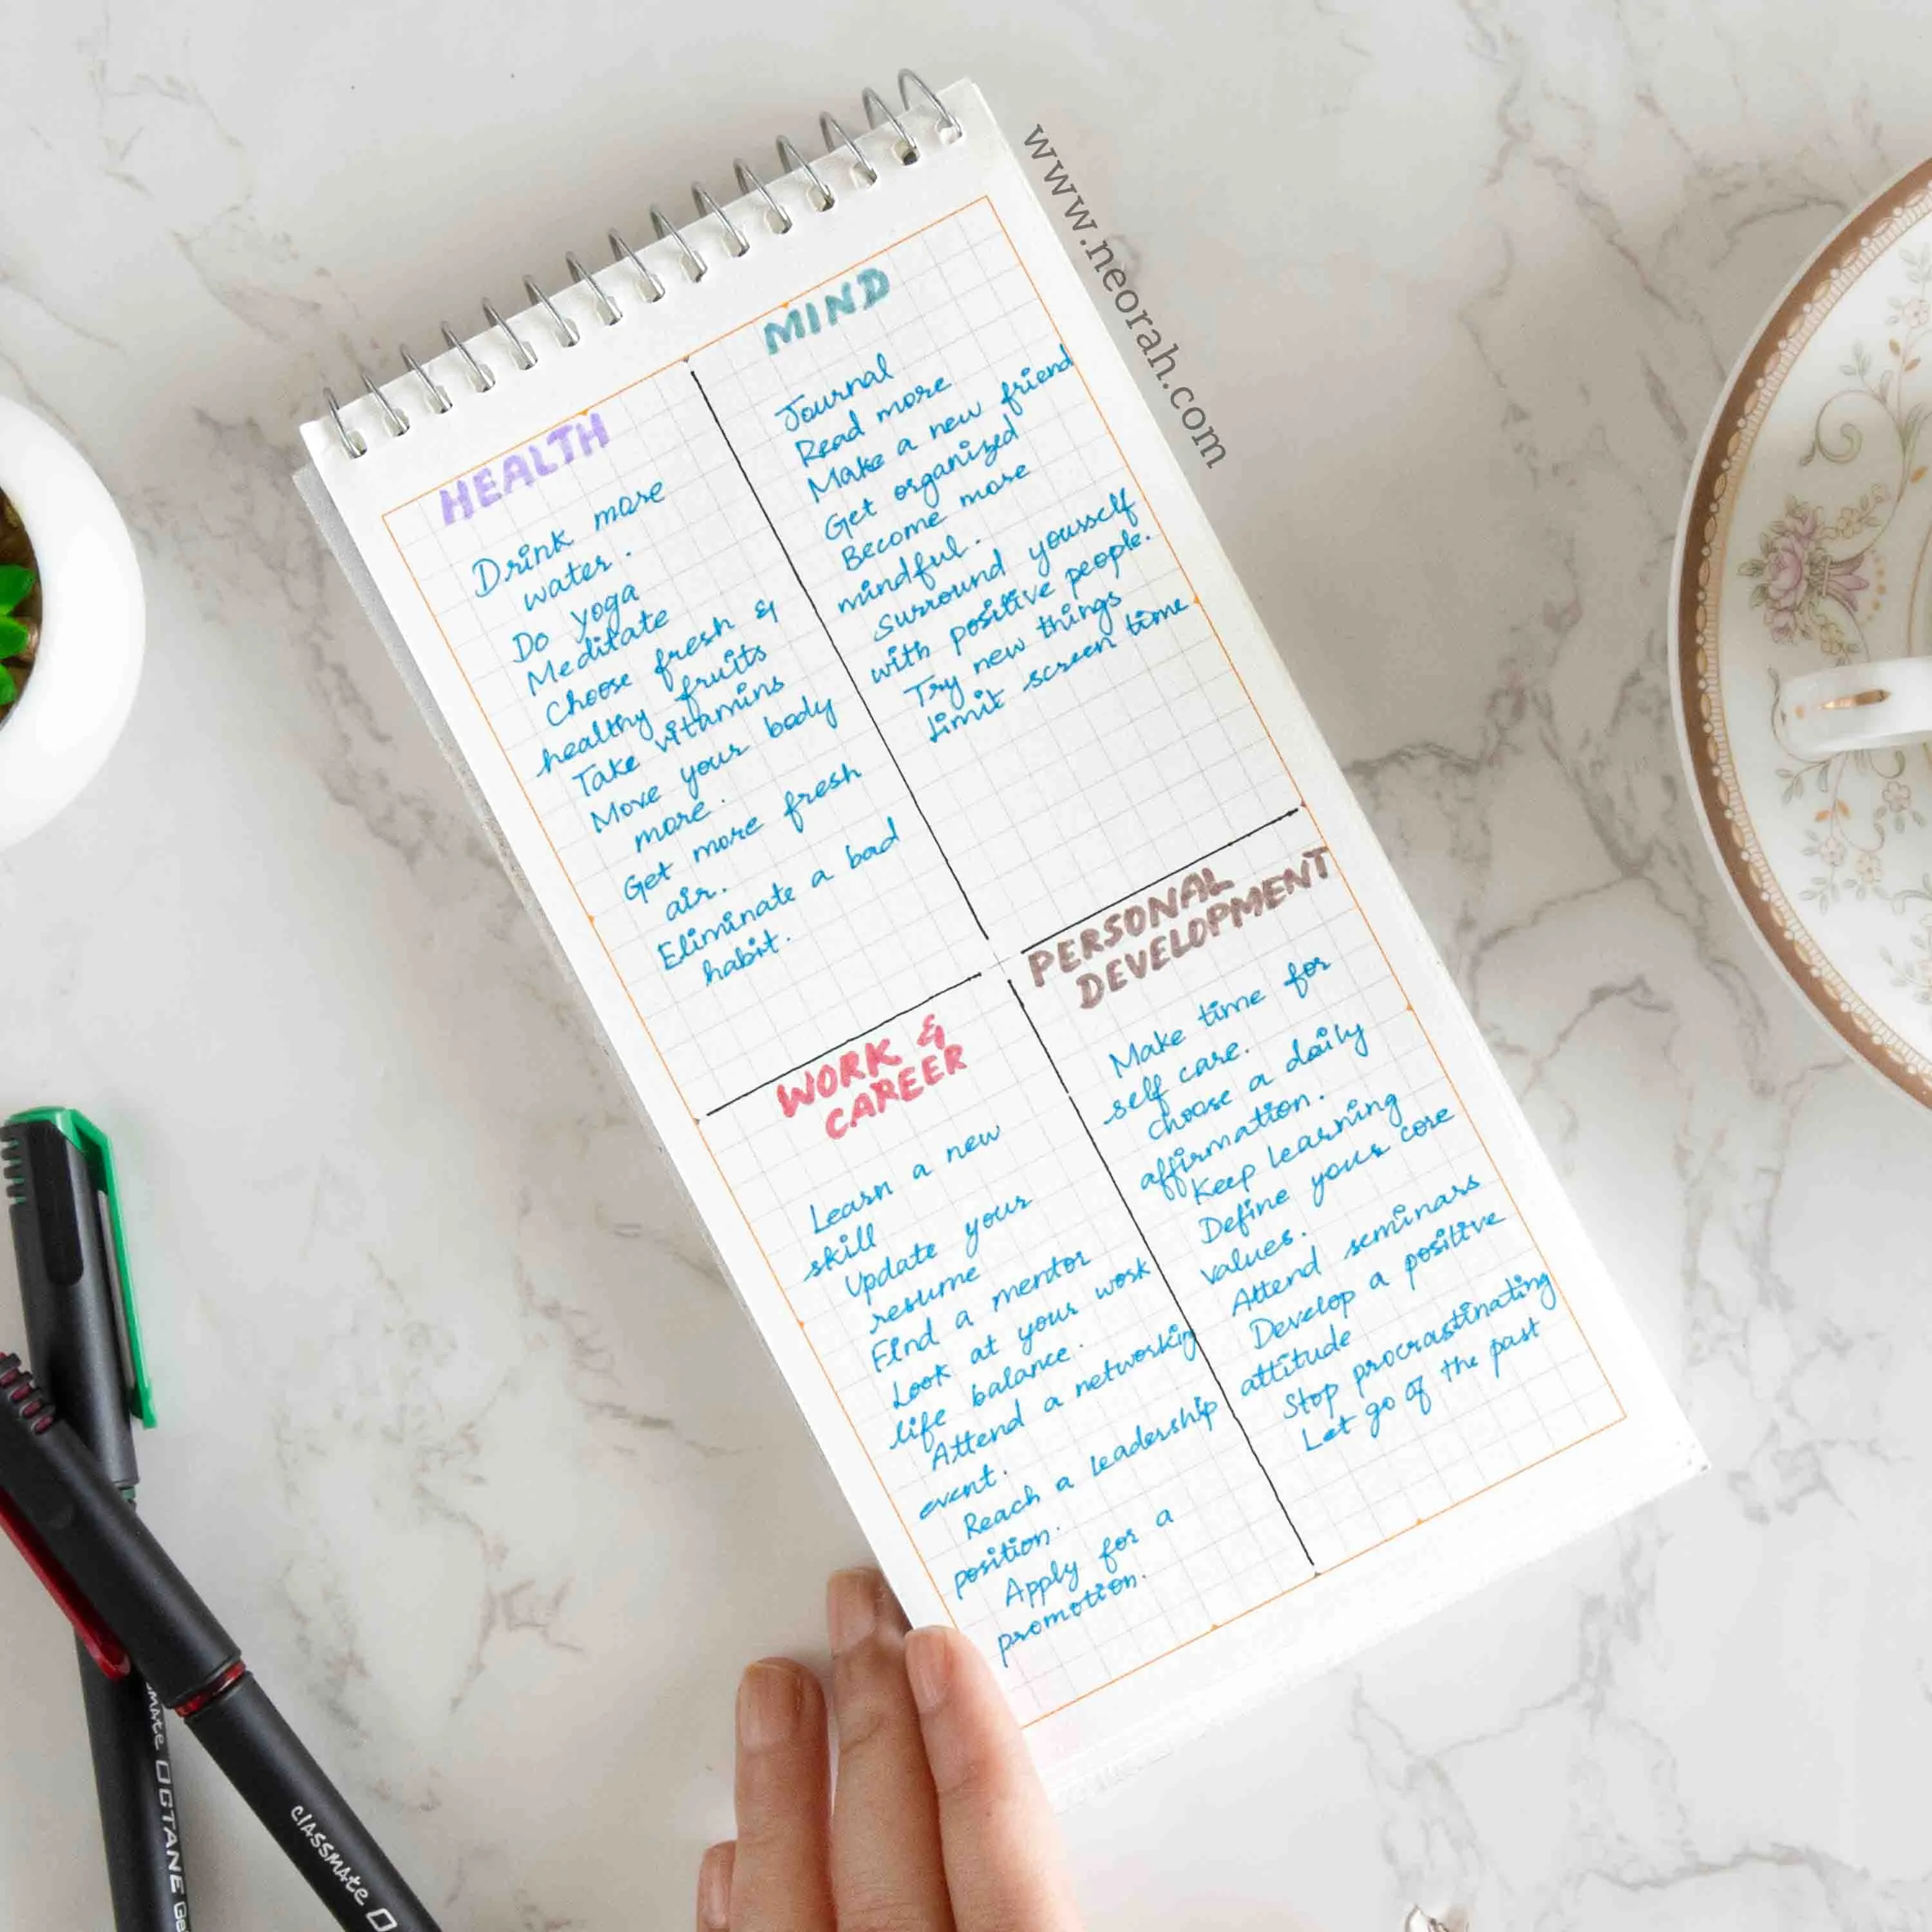 www.neorah.com
HEALTH
Drink more
water.
Do yoga
Meditate
Choose fresh &
healthy fruits
Take vitamins
Move your body
more.
Get more fresh
air.
Eliminate a bad
habit.
MIND
Journal
Read more
Make a new friend
Get organized
Become more
mindful.
Surround yourself
with positive people.
Try new things
Limit screen time
WORK &
CAREER
Learn a new
skill
Update your
resume
Find a mentor
Look at your work
life balance.
Attend a networking
event.
Reach a leadership
position.
Apply for a
promotion.
PERSONAL
DEVELOPMENT
Make time for
self care.
Choose a daily
affirmation.
Keep learning
Define your core
values.
Attend seminars
Develop a positive
attitude
Stop procrastinating
Let go of the past
OCTANE
classmate